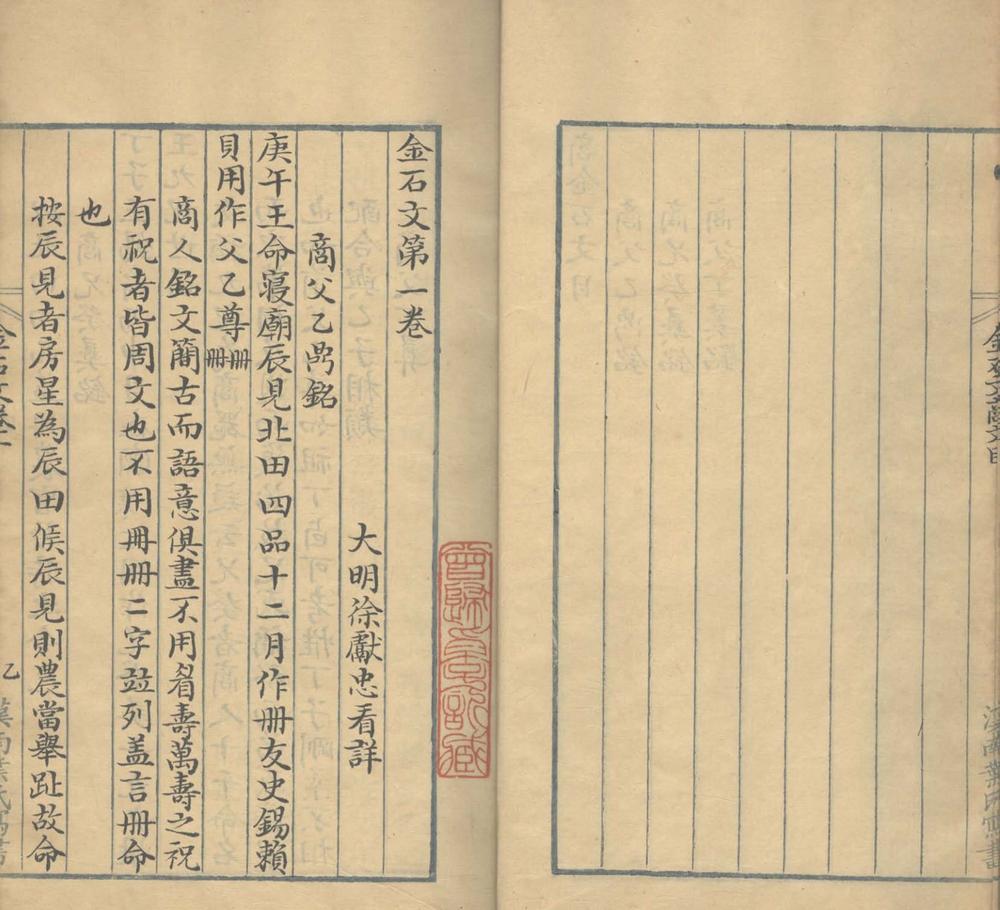 金石文第一卷
大明徐獻忠看詳
商父乙鼎銘
庚午王命寢廟辰見北田四品十二月作冊友史錫賴
貝用作父乙尊冊冊
商人銘文簡古而語意俱盡不用眉壽萬壽之祝
有祝者皆周文也不用冊冊二字竝列盖言冊命
也
按辰見者房星為辰田候辰見則農當舉趾故命